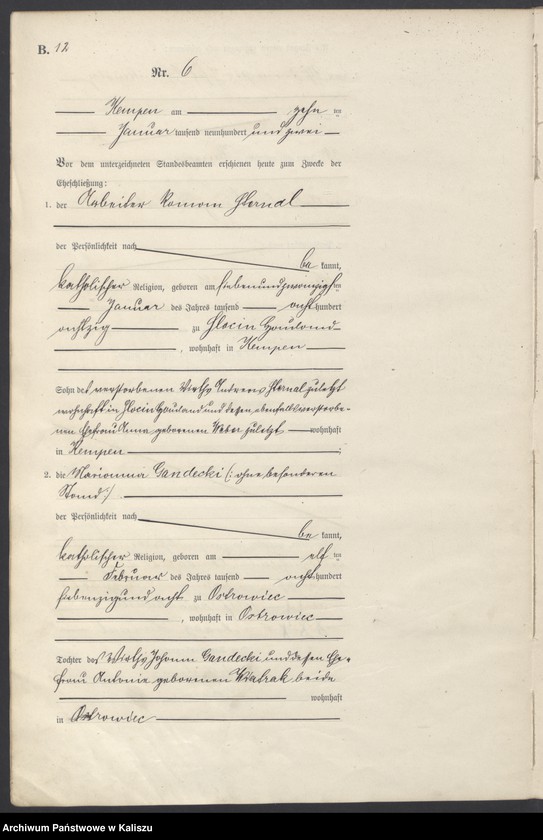 B. 12
Nr. 6
Kempen am zehn ten
Januar tausend neunhundert und zwei
Vor dem unterzeichneten Standesbeamten erschienen heute zum Zwecke der
Eheschließung:
1. der Arbeiter Roman
der Persönlichkeit nach
be kannt,
katholischer Religion, geboren am siebenundzwanzigsten
Januar des Jahres tausend acht hundert
achtzig zu
, wohnhaft in Kempen
Sohn des verstorbenen Wirths zuletzt
wohnhaft in und dessen ebenfalls verstorbe-
nen Ehefrau Anna geborenen Weber zuletzt wohnhaft
in Kempen ;
2. die Marianna Gandecki (: ohne besonderen
Stand :)
der Persönlichkeit nach
be kannt,
katholischer Religion, geboren am elf ten
Februar des Jahres tausend acht hundert
siebenzig und acht zu Ostrowiec
, wohnhaft in Ostrowiec
Tochter des Wirths Johann Gandecki und dessen Ehe-
frau Antonie geborenen Wiatrak beide
wohnhaft
in Ostrowiec
Archiwum Państwowe w Kaliszu